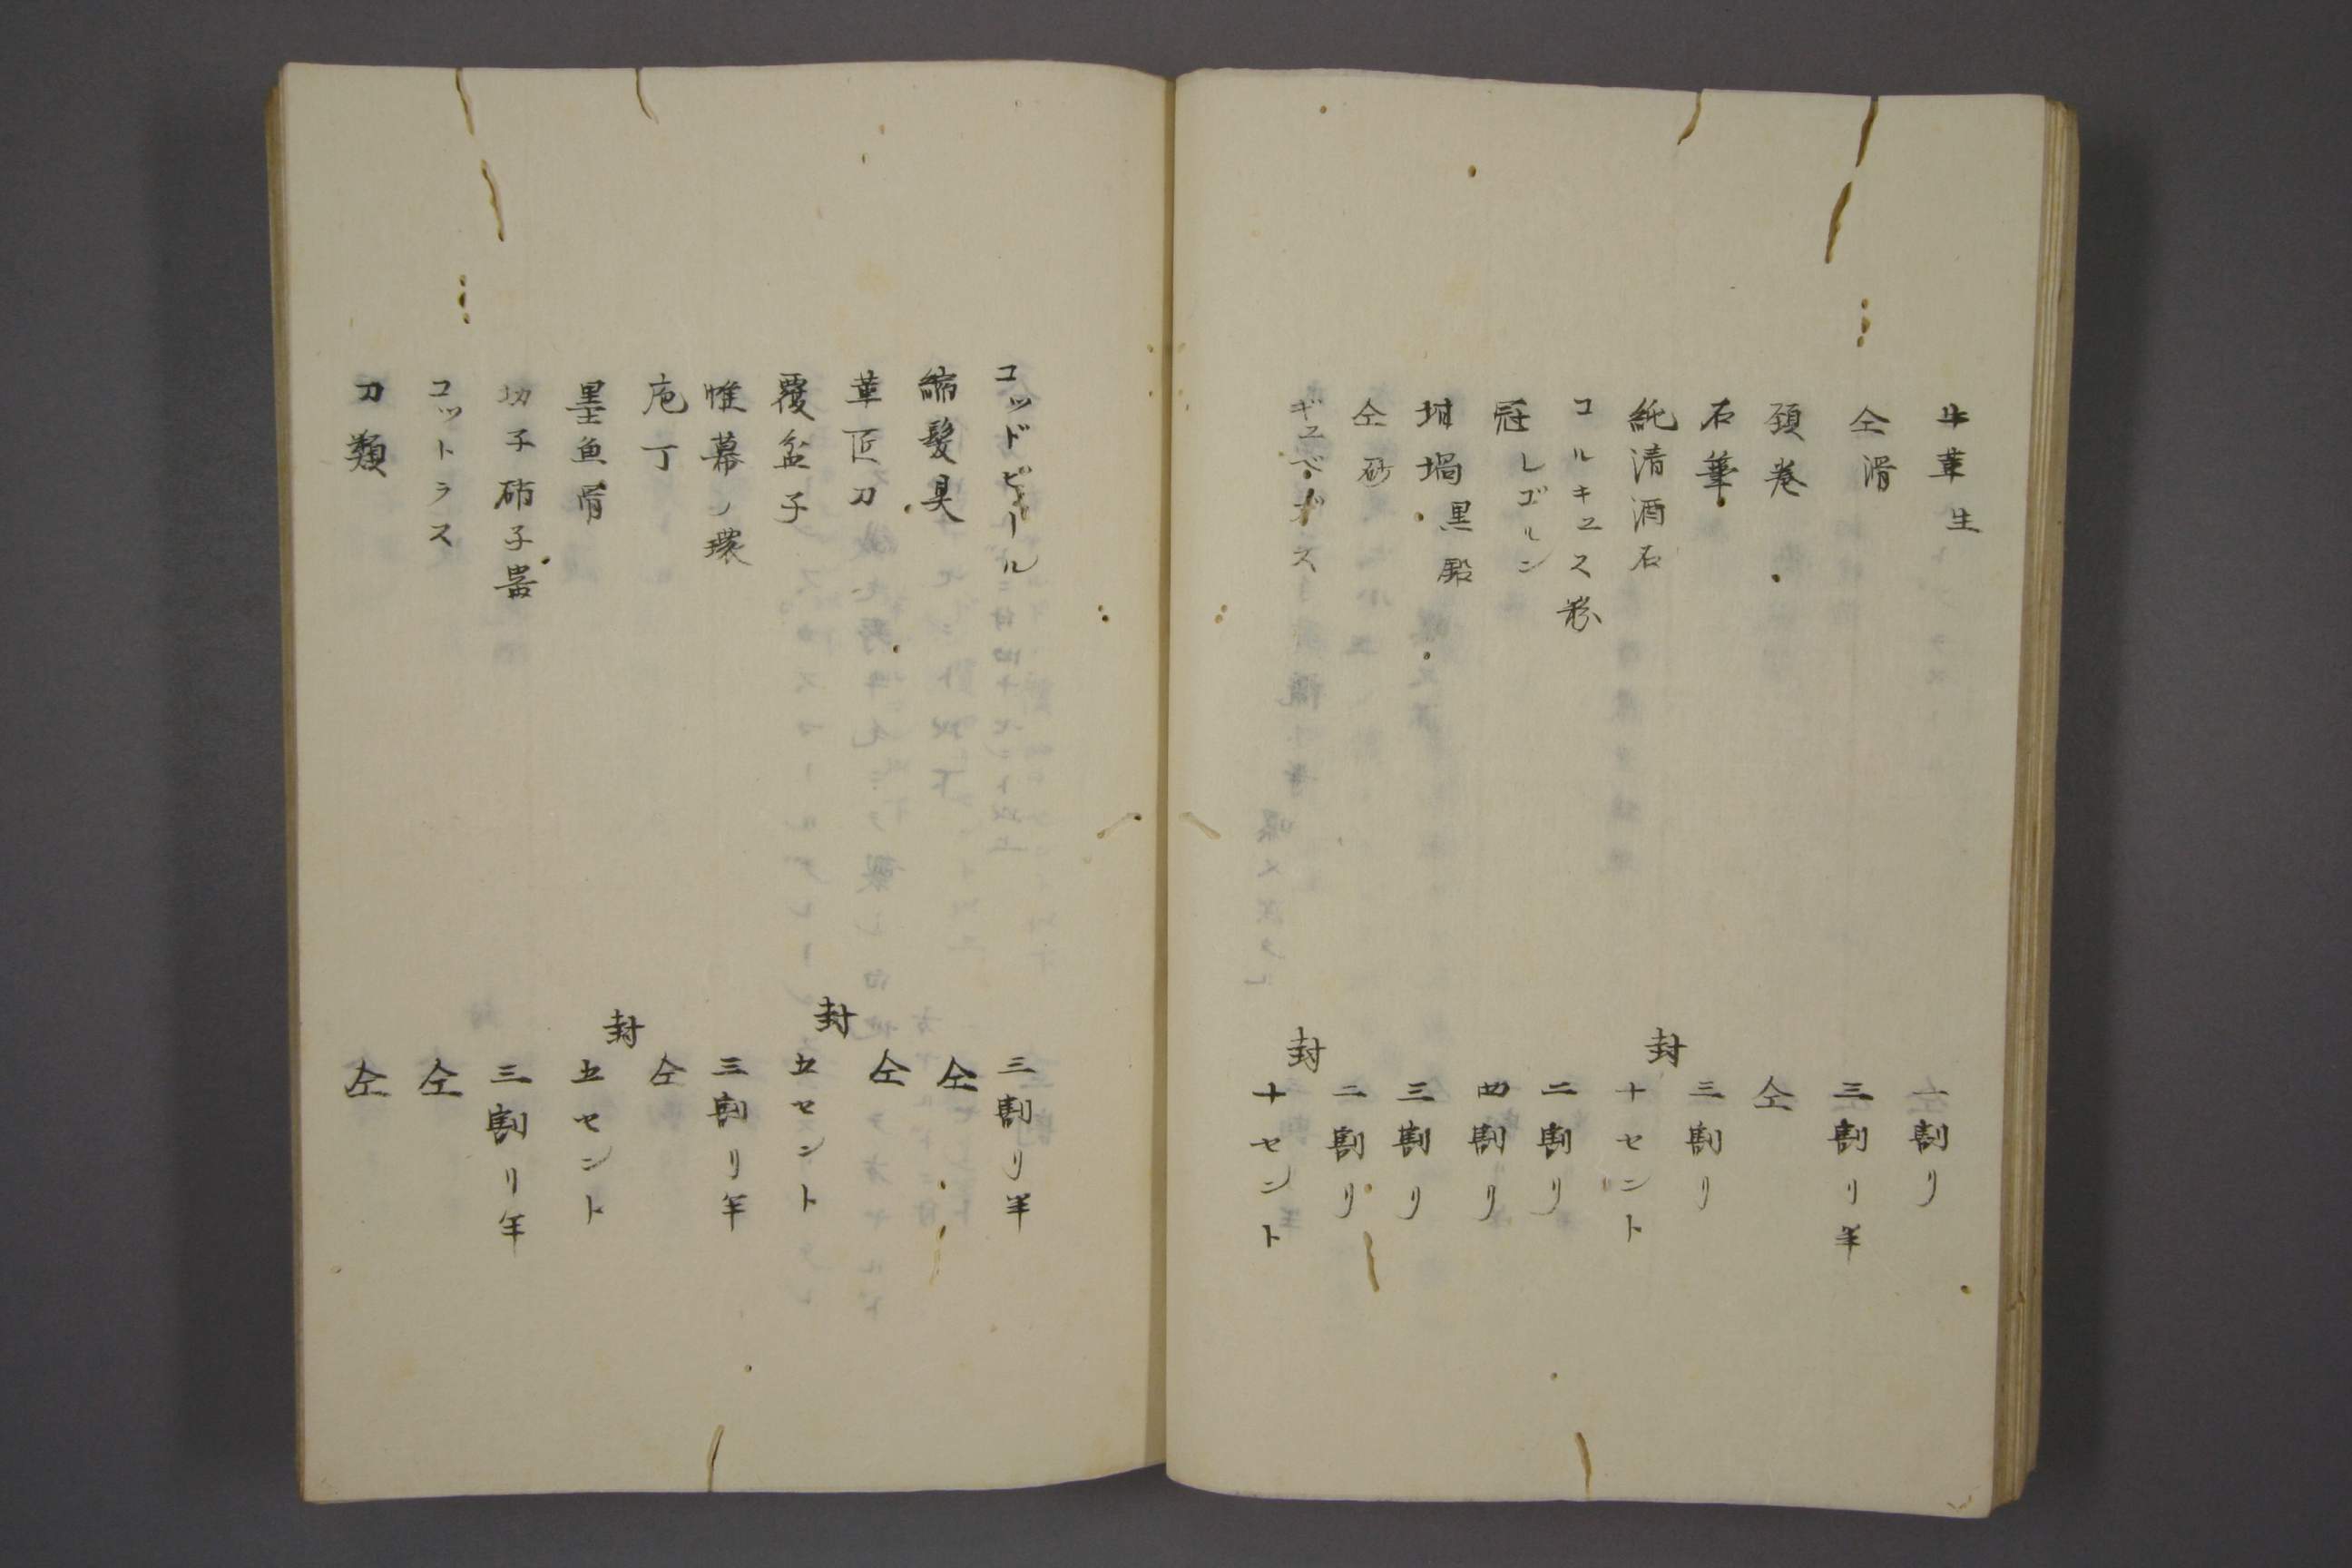 牛革生 一割リ
仝滑 三割リ半
頚巻 仝
石筆 三割リ
純清酒石 封 十セント
コルキユス粉 二割リ
冠レゴルン 四割リ
坩堝黒鉛 三割リ
仝砂 二割リ
ギユベボス 封 十セント
コッドビール 三割リ半
縮髪具 仝
革匠刀 仝
覆盆子 封 五セント
帷幕ノ環 三割リ半
庖丁 仝
墨魚骨 封 五セント
切子硝子器 三割リ半
コットラス 仝
刀類 仝